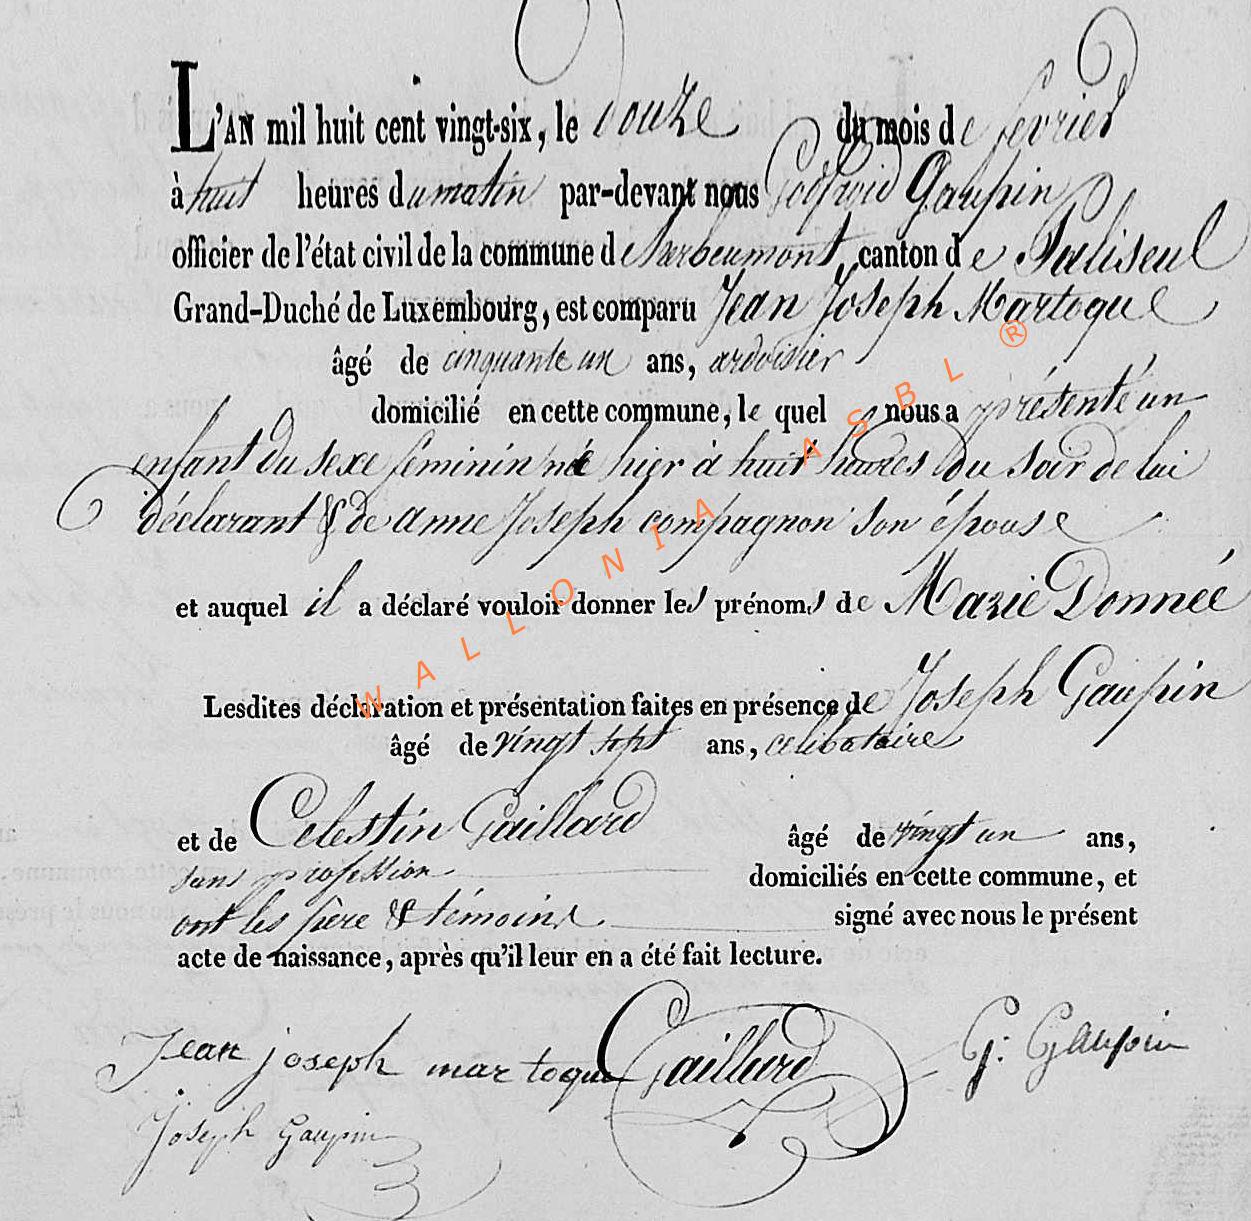 L'AN mil huit cent vingt-six, le douze du mois de fevrier
à huit heures du matin par-devant nous Godfroid Gaupin
officier de l'état civil de la commune d'herbeumont, canton de Paliseul
Grand-Duché de Luxembourg, est comparu Jean Joseph Martoque
âgé de cinquante un ans, ardoisier
domicilié en cette commune, le quel nous a présenté un
enfant du sexe féminin né hier à huit heures du soir de lui
déclarant & de anne Joseph compagnon son épouse
et auquel il a déclaré vouloir donner les prénoms de Marie Donnée
Lesdites déclaration et présentation faites en présence de Joseph Gaupin
âgé de vingt sept ans, celibataire
et de Celestin Gaillard âgé de vingt un ans,
sans profession domiciliés en cette commune, et
ont les père & témoins signé avec nous le présent
acte de naissance, après qu'il leur en a été fait lecture.
Jean joseph martoque Gaillard G: Gaupin
Joseph Gaupin
WALLONIA ASBL ®